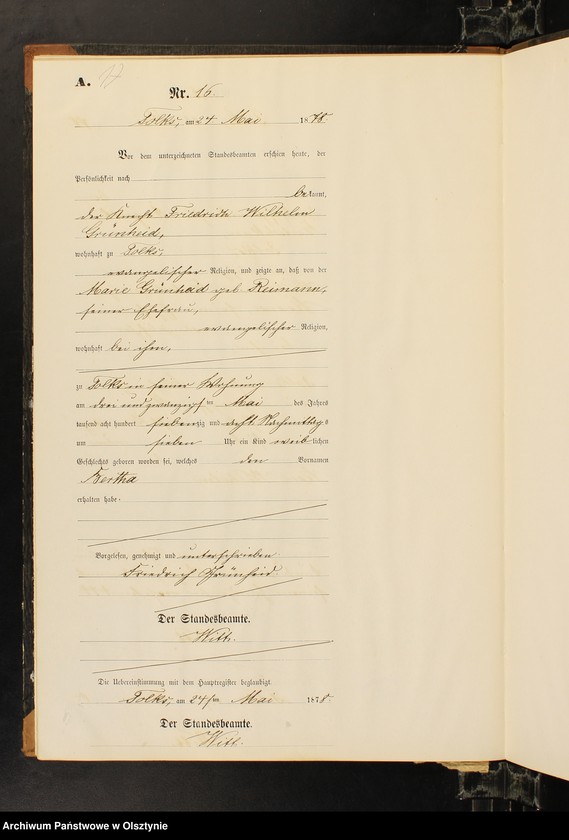 A. 17
Nr. 16.
Tolks, am 24 Mai 1878
Vor dem unterzeichneten Standesbeamten erschien heute, der
Persönlichkeit nach
bekannt,
der Knecht Friedrich Wilhelm
Grünheid,
wohnhaft zu Tolks,
evangelischer Religion, und zeigte an, daß von der
Marie Grünheid geb. Reimann,
seiner Ehefrau,
evangelischer Religion,
wohnhaft bei ihm,
zu Tolks in seiner Wohnung
am drei und zwanzigsten Mai des Jahres
tausend acht hundert siebenzig und acht Nachmittags
um sieben Uhr ein Kind weiblichen
Geschlechts geboren worden sei, welches den Vornamen
Bertha
erhalten habe.
Vorgelesen, genehmigt und unterschrieben
Friedrich Grünheid.
Der Standesbeamte.
Witt.
Die Uebereinstimmung mit dem Hauptregister beglaubigt.
Tolks, am 24ten Mai 1878.
Der Standesbeamte.
Witt.
Archiwum Państwowe w Olsztynie